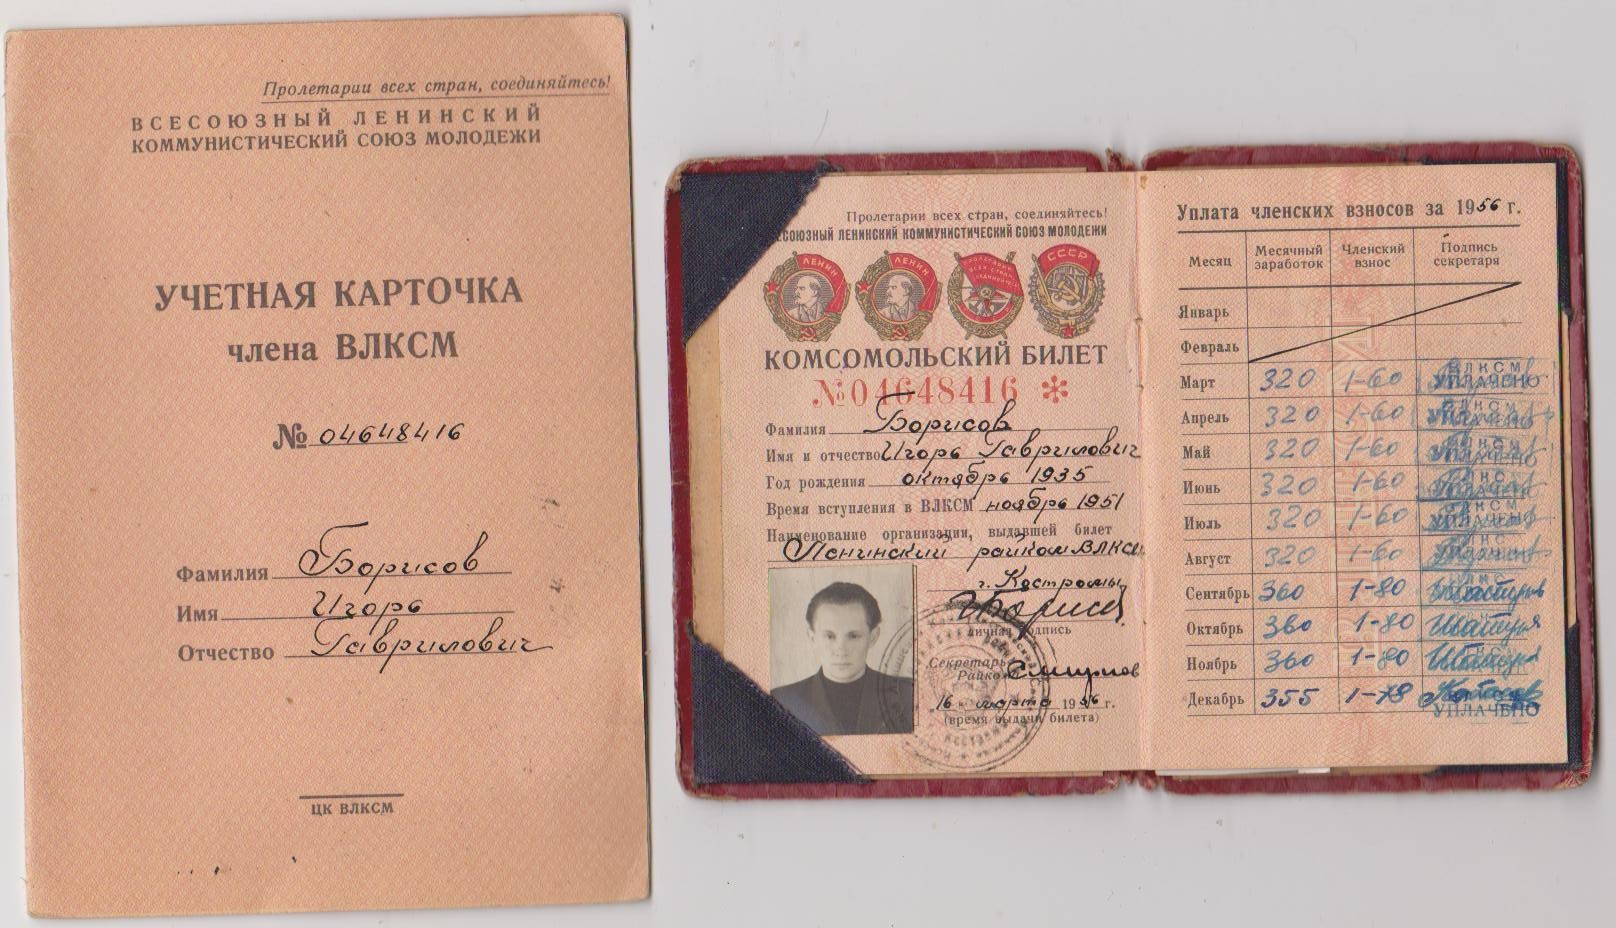 Пролетарии всех стран, соединяйтесь!
ВСЕСОЮЗНЫЙ ЛЕНИНСКИЙ
КОММУНИСТИЧЕСКИЙ СОЮЗ МОЛОДЕЖИ
УЧЕТНАЯ КАРТОЧКА
члена ВЛКСМ
№ 04648416
Фамилия Борисов
Имя Игорь
Отчество Гаврилович
ЦК ВЛКСМ
Пролетарии всех стран, соединяйтесь!
ЕСОЮЗНЫЙ ЛЕНИНСКИЙ КОММУНИСТИЧЕСКИЙ СОЮЗ МОЛОДЕЖИ
ЛЕНИН ЛЕНИН ПРОЛЕТАРИИ ВСЕХ СТРАН СОЕДИНЯЙТЕСЬ СССР
КОМСОМОЛЬСКИЙ БИЛЕТ
№04648416 *
Фамилия Борисов
Имя и отчество Игорь Гаврилович
Год рождения октябрь 1935
Время вступления в ВЛКСМ ноябрь 1951
Наименование организации, выдавшей билет
Ленинский райком ВЛКСМ
г. Костромы
личная подпись
Секретарь
Райко Смирнов
16 марта 1956 г.
(время выдачи билета)
Уплата членских взносов за 1956 г.
Месяц Месячный заработок Членский взнос Подпись секретаря
Январь
Февраль
Март 320 1-60 ВЛКСМ УПЛАЧЕНО
Апрель 320 1-60 ВЛКСМ УПЛАЧЕНО
Май 320 1-60 ВЛКСМ УПЛАЧЕНО
Июнь 320 1-60 УПЛАЧЕНО
Июль 320 1-60 ВЛКСМ УПЛАЧЕНО
Август 320 1-60
Сентябрь 360 1-80
Октябрь 360 1-80
Ноябрь 360 1-80
Декабрь 355 1-78 УПЛАЧЕНО